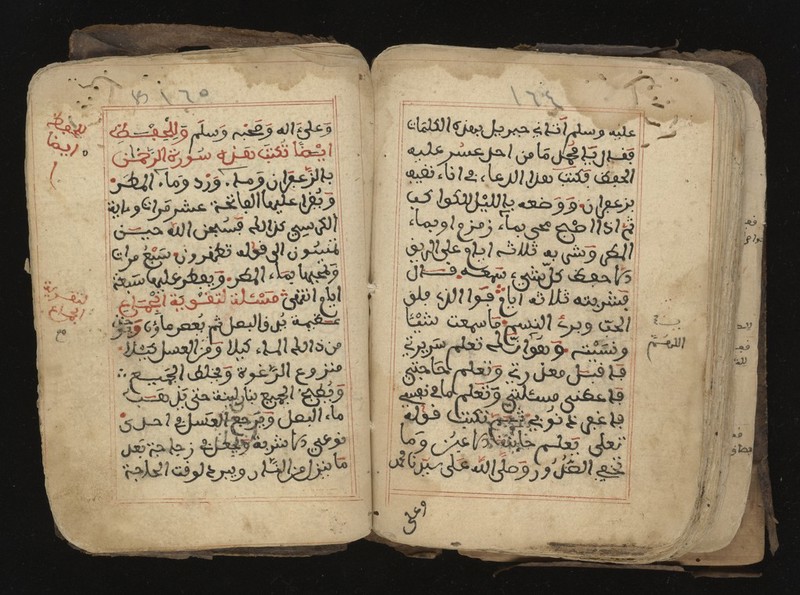 ١٦٤
عليه وسلم أتاني جبريل بهذه الكلمات
فقال يا محمد ما من احد عسر عليه
الحفظ فكتب هذا الدعاء في اناء نظيف
بزعفران ووضعه بالليل للكواكب
ثم اذا اصبح محي بماء زمزم او بماء
المطر وشربه ثلاثة ايام على الريق
حفظ كل شيء سمعه قال
فشربته ثلاثة ايام فوالذي فلق
الحب وبرئ النسم ما سمعت شيئا
ونسيته وهو اللهم تعلم سريرتي
فاقبل معذرتي وتعلم حاجتي
فاعطني مسئلتي وتعلم ما في نفسي
فاغفر لي ذنوبي ثم تكتب قوله
تعلى يعلم خائنة الاعين وما
تخفي الصدور وصلى الله على سيدنا محمد
وعلى
اللهم
١٦٥
وعلى اله وصحبه وسلم وللحفظ
ايضا تكتب هذه سورة الرحمن
بالزعفران وماء ورد وماء المطر
ويقرا عليها الفاتحة عشر مرات واية
الكرسي كذالك فسبحن الله حين
تمسون الى قوله تظهرون سبع مرات
وتمحيها بماء المطر ويفطر عليها سبعة
ايام انتهى مسئلة لتقوية الجماع
عظيمة بذر البصل ثم يعصر ماؤه
من ذالك الماء كيلا ومن العسل كيلا
منزوع الرغوة ويخلط الجميع
ويطبخ الجميع بنار لينة حتى يذهب
ماء البصل ويرجع العسل في احدى
نوعي الاشربة ويجعل في زجاجة بعد
ما ينزل من النار ويبرد لوقت الحاجة
للحفظ
ايضا
لتقوية
الجماع